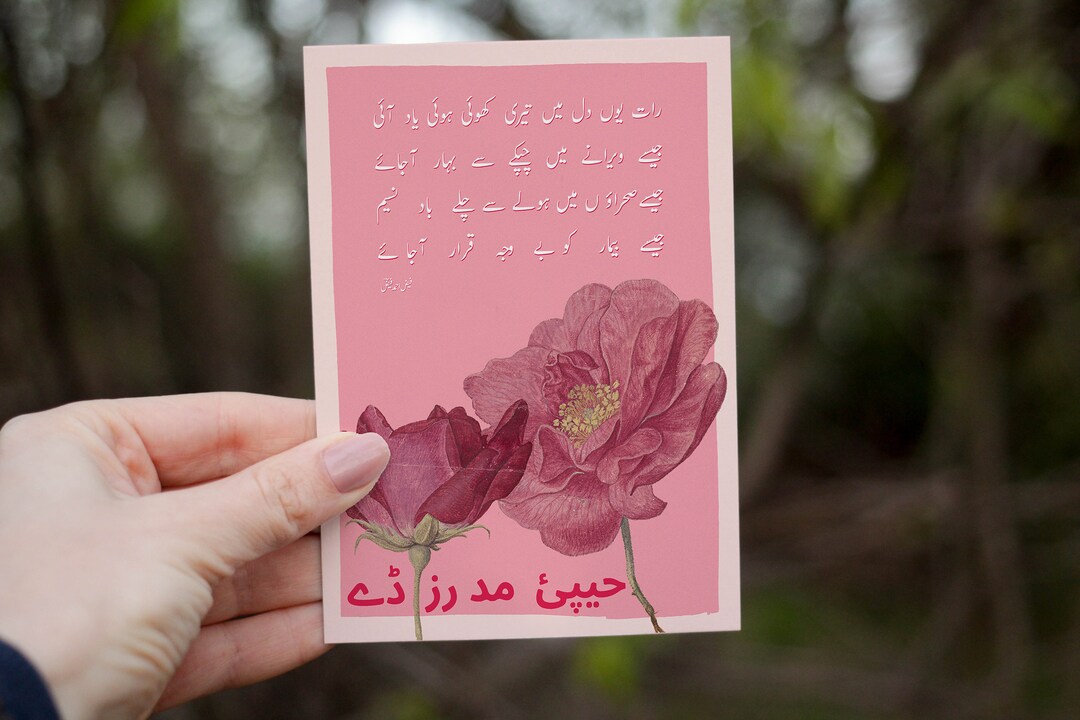 رات یوں دل میں تیری کھوئی ہوئی یاد آئی
جیسے ویرانے میں چپکے سے بہار آجائے
جیسے صحراؤ ں میں ہولے سے چلے باد نسیم
جیسے بیمار کو بے وجہ قرار آجائے
فیض احمد فیض
حیپئ مد رز ڈے